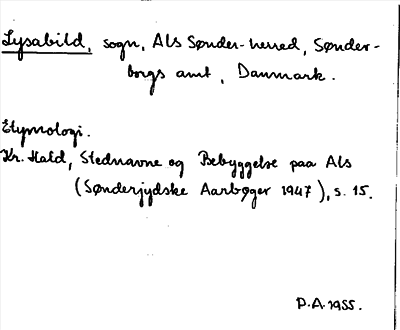 Lysabild, sogn, Als Sønder-herred, Sønder-
borgs amt, Danmark.
Etymologi.
Kr. Hald, Stednavne og Bebyggelse paa Als
(Sønderjydske Aarbøger 1947), s. 15.
P.A. 1955.